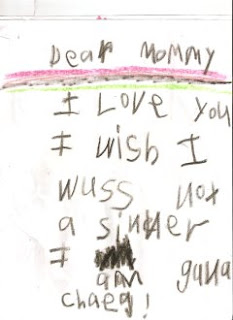 Dear Mommy
I Love you
I wish I
wuss not
a sinner
I
am guna
chaeg!